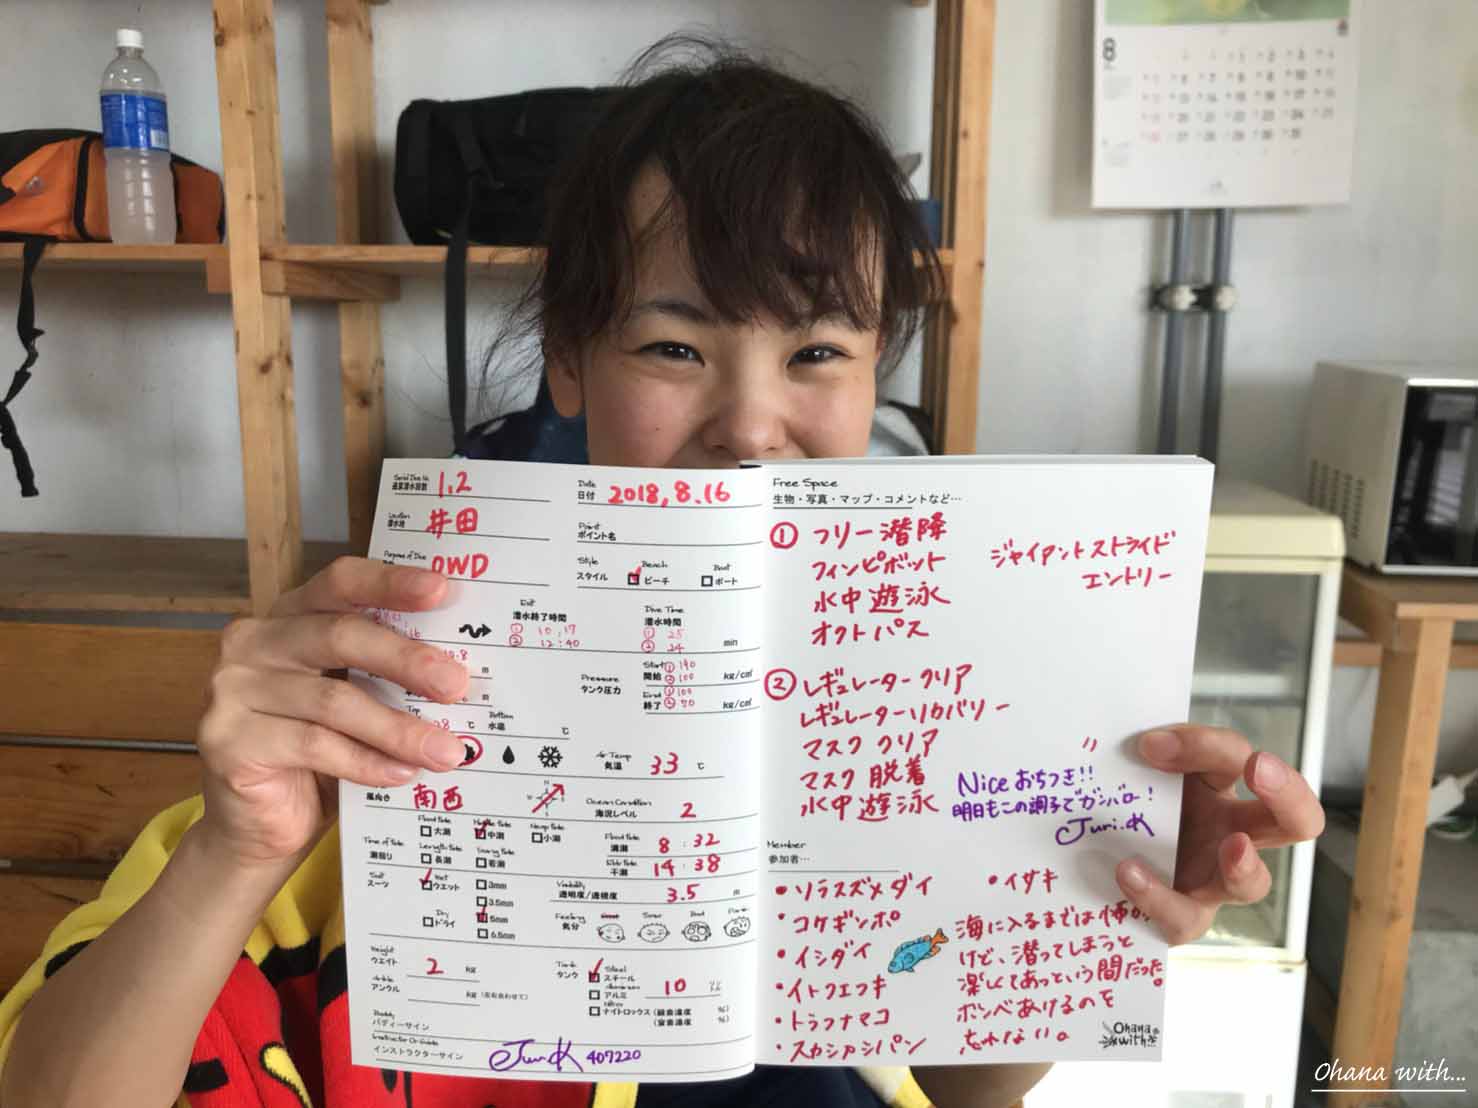 8
Serial Dive No.
通算潜水回数 1,2
Date
日付 2018, 8. 16
Location
潜水地 井田
Point
ポイント名
Purpose of Dive
OWD
Style
スタイル
Beach
ビーチ
Boat
ボート
Exit
潜水終了時間
① 10:17
② 12:40
Dive Time
潜水時間
① 25
② 24
min
m
Pressure
タンク圧力
Start
開始
① 190
② 100
kg/c㎡
End
終了
① 100
② 70
kg/c㎡
m
Top
28 ℃
Bottom
水温 ℃
Air Temp
気温 33 ℃
風向き 南西
Ocean Condition
海況レベル 2
Time of Tide
潮回り
大潮
中潮
小潮
長潮
若潮
Flood Tide
満潮 8:32
Ebb Tide
干潮 14:38
Suit
スーツ
Wet
ウエット
3mm
3.5mm
5mm
6.5mm
Dry
ドライ
Visibility
透明度/透視度 3.5 m
Feeling
気分
Weight
ウエイト 2 kg
Ankle
アンクル kg (左右合わせて)
Tank
タンク
Steel
スチール
Aluminum
アルミ 10
Nitrox
ナイトロックス (酸素濃度 %)
(窒素濃度 %)
Buddy
バディーサイン
Instructor Or Guide
インストラクターサイン Juri.K 407220
Free Space
生物・写真・マップ・コメントなど…
① フリー潜降
フィンピボット
水中遊泳
オクトパス
ジャイアントストライド
エントリー
② レギュレータークリア
レギュレーターリカバリー
マスククリア
マスク脱着
水中遊泳
〃
Nice おちつき!!
明日もこの調子でガンバロー!
Juri.K
Member
参加者…
・ソラスズメダイ
・コケギンポ
・イシダイ
・イトフエフキ
・トラフナマコ
・スカシカシパン
・イサキ
海に入るまでは怖
けど、潜ってしまうと
楽しくてあっという間だった。
ボンベあけるのを
忘れない。
Ohana
with
Ohana with...